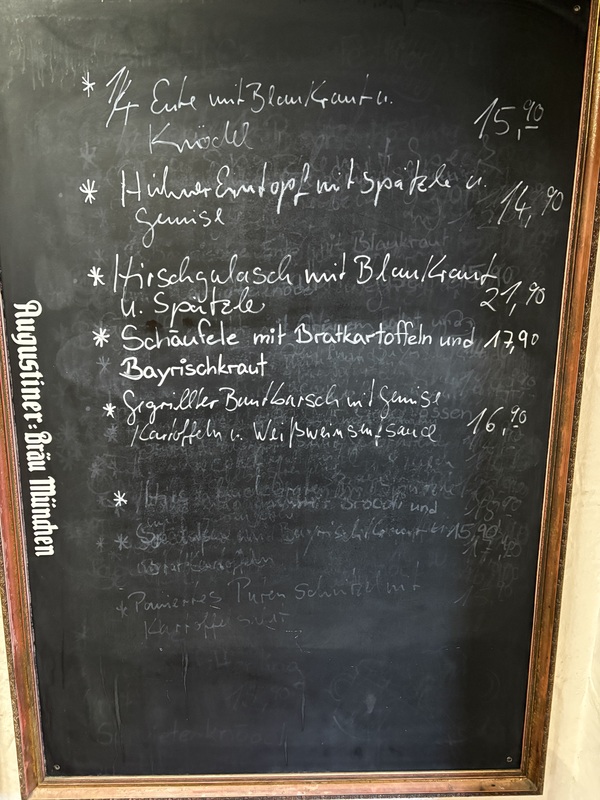 * 1/4 Ente mit Blaukraut u. 15,90
Knödel
* Hühner Eintopf mit Spätzle u. 14,90
gemüse
* Hirschgulasch mit Blaukraut 21,90
u. Spätzle
* Schäufele mit Bratkartoffeln und 17,90
Bayrischkraut
* Gegrillter Buntbarsch mit Gemüse 16,90
Kartoffeln u. Weißweinsenfsauce
* Brocoli und
* 15,90
* Paniertes Puten schnitzel mit
Kartoffel
Augustiner-Bräu München